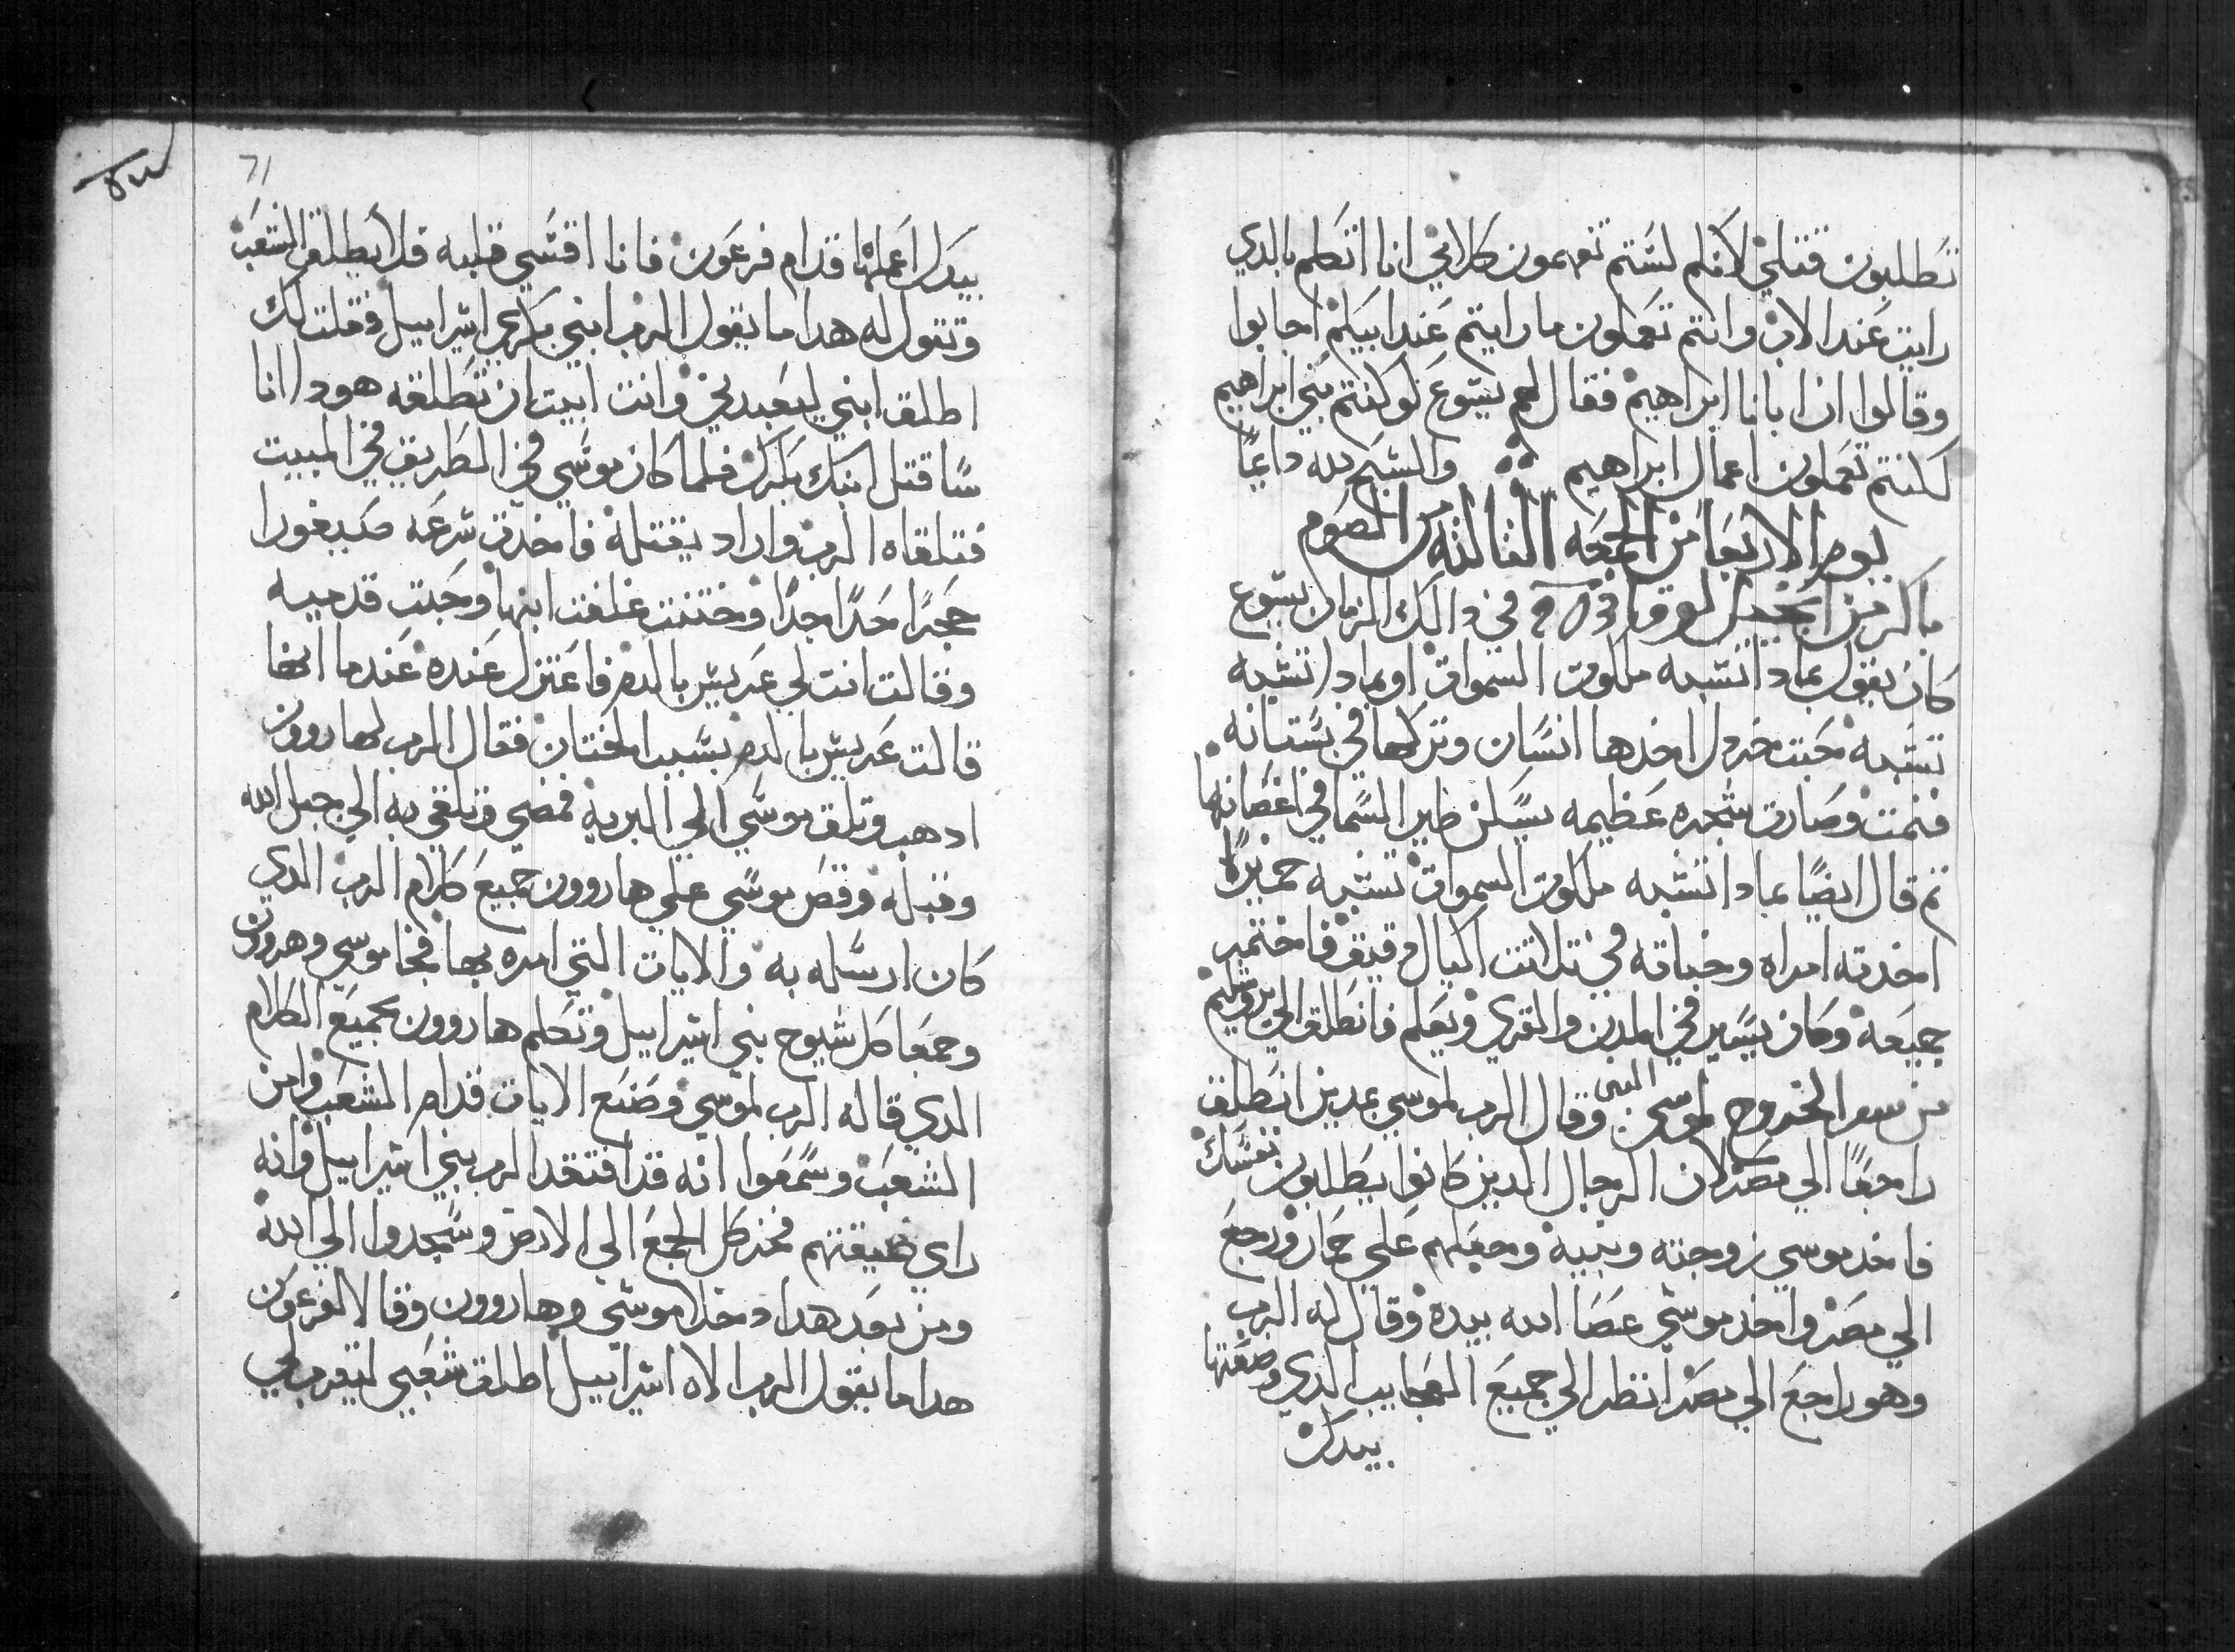 تطلبون قتلي لانكم لستم تفهمون كلامي انا اتكلم بالدي
رايت عند الاب وانتم تعملون ما رايتم عند ابيكم اجابوا
وقالوا ان ابانا ابراهيم فقال لهم يسوع لو كنتم بني ابراهيم
كنتم تعملون اعمال ابراهيم والسبح لله دايما
يوم الاربعا من الجمعه التالته من الصوم
باكر من انجيل لوقا في دالك الزمان يسوع
كان يقول بمادا تشبه ملكوت السموات او بمادا تشبه
تشبه حبت خردل اخدها انسان وتركها في بستانه
فنمت وصارت شجره عظيمه يسكن طير السما في اغصانها
تم قال ايضا بمادا تشبه ملكوت السموات تشبه خميرا
اخدته امراه وخباته في تلاتت اكيال دقيق فاختمر
جميعه وكان يسير في المدن والقري ويعلم فانطلق الي يروشليم
من سفر الخروج لموسي النبى وقال الرب لموسي بمدين انطلق
راجعا الي مصر لان الرجال الدين كانوا يطلبون نفسك
فاخد موسي زوجته وبنيه وجعلهم علي حمار ورجع
الي مصر واخد موسي عصا الله بيده وقال له الرب
وهو راجع الي مصر انظر الي جميع العجايب الدي وضعتها
بيدك
71
بيدك اعملها قدام فرعون فانا اقسي قلبه فلا يطلق الشعب
وتقول له هدا ما يقول الرب ابني بكري اسراييل وقلت لك
اطلق ابني ليعبدني وانت ابيت ان تطلقه هودا انا
ساقتل ابنك بكرك فلما كان موسي في الطريق في المبيت
فتلقاه الرب واراد يقتله فاخدت سرعه صيبفورا
حجرا حدا جدا وختنت غلفت ابنها وجت قدميه
وقالت انت لي عريس بالدم فاعتزل عنده عندما انها
قالت عريس بالدم بسبب الختان فقال الرب لهاروون
ادهب وتلق موسي الي البريه فمضي وتلقي به الي جبل الله
وقبله وقص موسي علي هاروون جميع كلام الرب الدي
كان ارسله به والايات التي امره بها فجا موسي وهروون
وجمعا كل شيوخ بني اسراييل وتكلم هاروون بجميع الكلام
الدي قاله الرب لموسي وصنع الايات قدام الشعب وامن
الشعب وسمعوا انه قد افتقد الرب بني اسراييل وانه
راي ضيقتهم فخر كل الجمع الي الارض وسجدوا الي الله
ومن بعد هدا دخلا موسي وهاروون وقالا لفرعون
هدا ما يقول الرب الاه اسراييل اطلق شعبي ليقرب لي